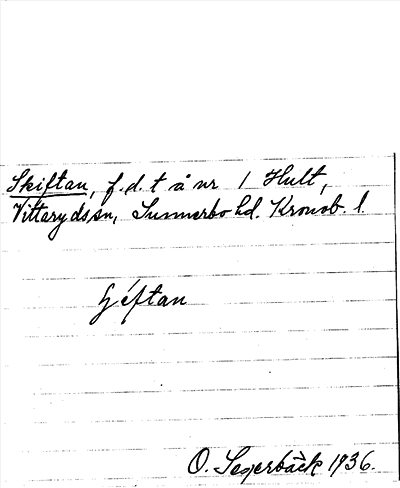 Skiftan, f.d. t å nr 1 Hult,
Vittarydssn, Sunnerbo hd. Kronob. l.
ſéftan
O. Segerbäck 1936.